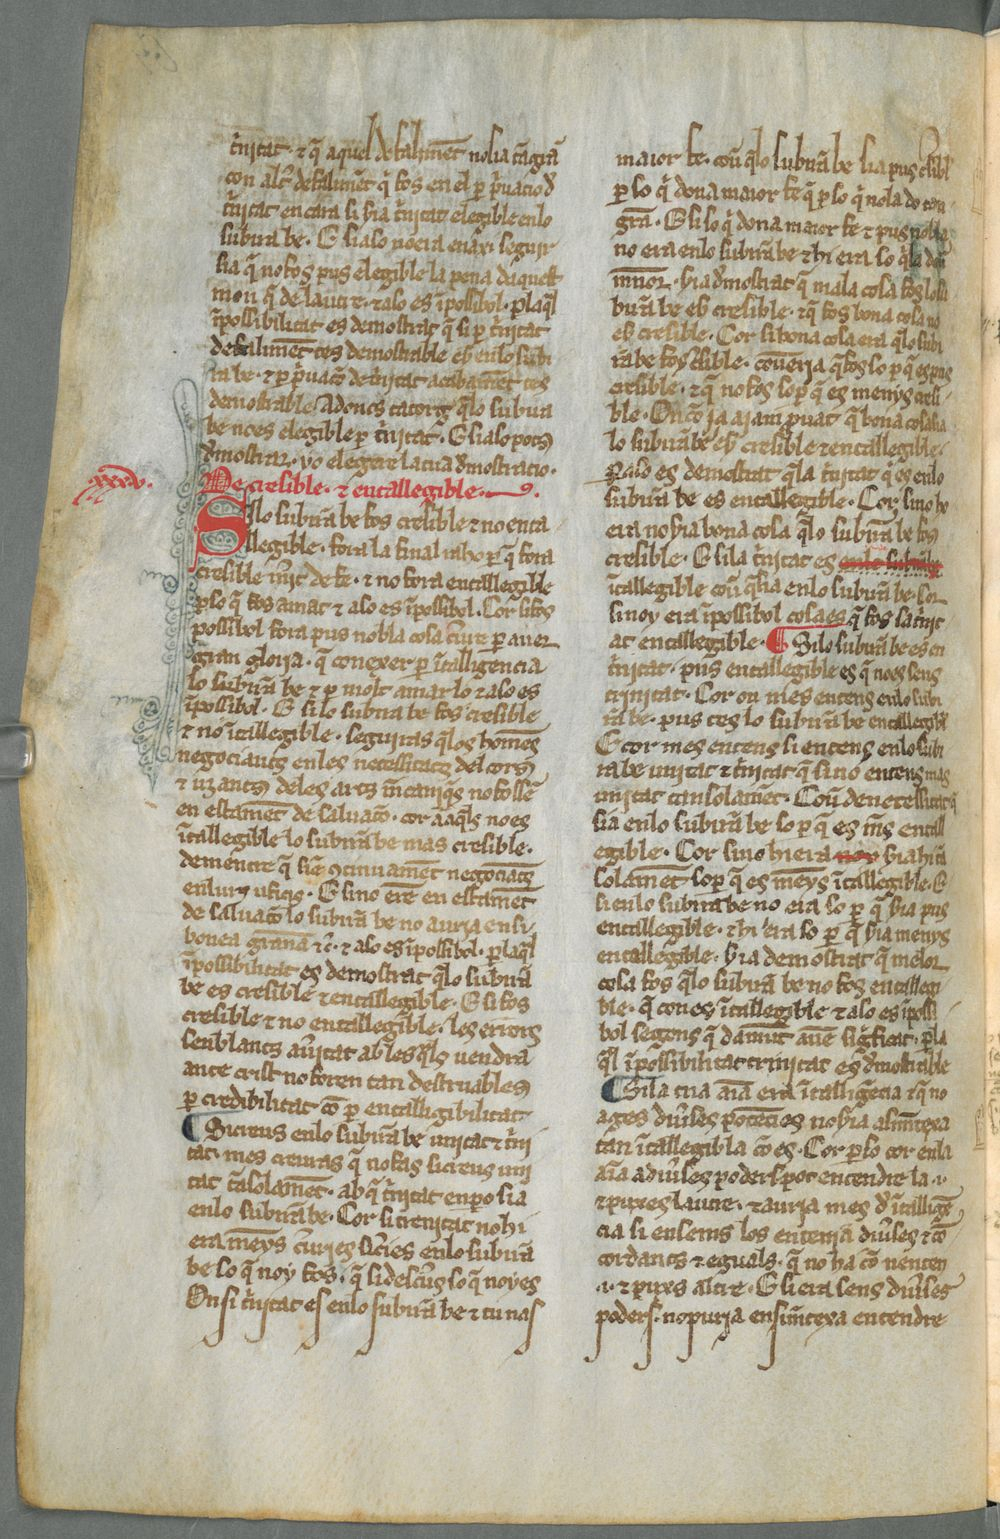 t̃nitat · ⁊ q̃ aquel defalimēt nolia cõtgrā
con alt̃ defalimēt q̃ fos en el ꝑ p̃uacio d̃
t̃nitat encara si h̃ia t̃nitat elegible enlo
subirā be · E si aso no era enaxi seguir
sia q̃ no fos pus elegible la pena daquest
mon q̃ de laut̃e · ⁊ aso es īpossibol · ꝑ laq̄l
īpossibilitat es demostrat q̃ si ꝑ t̃nitat
defalimēt tes demostrable eñ enlo subi
rā be · ⁊ ꝑ p̃uacõ de t̃nitat acabamēt tes
demostrable Adoncs catorg q̄lo subirā
be nces elegible ꝑ t̃nitat · E si aso pots
d̃mostrar · yo elegere la tua d̃mostracio ·
xxxv.
De cresible · ⁊ entallegible ·
Silo subirā be fos cresible ⁊ no enta
llegible · fora la final raho ꝑ q̃ fora
cresible m̃it de fe · ⁊ no fora entallegible
ꝑ lo q̃ fos amat ⁊ aso es īpossibol · Cor si fos
possibol fora pus nobla cosa c̃iure ꝑ auer
gran glorja · q̃ conexer ꝑ ītalligencia
lo subirā be ⁊ ꝑ molt amar lo ⁊ aso es
īpossibol · E si lo subira be fos cresible
⁊ no ītallegible · seguiras q̄los homēs
negociants en les necessitatz del cors
⁊ uzants deles arts mēcaniq̃s no fossē
en estamēt de saluacõ · cor a aq̄ls no es
ītallegible lo subirā be mas cresible ·
dementre q̃ siē ꝯtinuamēt negociatz
enlurs uficis · E si no erē en estamēt
de saluacõ lo subirā be no aurja en si
bonea granēa ⁊c̃ · ⁊ aso es īpossibol · ꝑ laq̄l
īpossibilitat es demostrat q̄lo subirā
be es cresible ⁊ entallegible · E si fos
cresible ⁊ no entallegible · les errors
senblants au̇itat ab les q̄ls vendra
ante crist no foren tan destruables
ꝑ credibilitat cõ ꝑ entalligibilitat
¶ Si creus enlo subirā be unitat ⁊ t̃ni
tat · mes creuras q̃ no fas si creus uni
tat tāsolamēt · ab q̃ t̃nitat enpero sia
enlo subirā be · Cor si trenitat no hi
era mēys c̃urjes si c̃ies enlo subirā
be so q̃ noy fos · q̃ si descr̃us so q̃ noy es
On si t̃nitat es enlo subirā be ⁊ tu nas
maior fe · cou q̄lo subirā be sia pus c̃sibl
ꝑ so q̃ dona maior fe q̃ ꝑ so q̃ nola do con
grā · E si so q̃ dona maior fe ⁊ pus nobla
no era enlo subirā be ⁊ hi era so q̄ la don
minor · h̃ia d̃mostrat q̃ mala cosa fos lo su
birā be eẽ cresible · ⁊ q̃ fos bona cosa no
eẽ cresible · Cor si bona cosa era q̄lo subi
rā be fos c̃sible · couērja q̃ fos so ꝑ q̃ es pus
cresible · ⁊ q̃ no fos so ꝑ q̃ es menys cresi
ble · On cō ja ajam p̃uat q̃ bona cosa sia
lo subirā be eẽ cresible ⁊ entallegible ·
ꝑ aso es demostrat q̄la t̃nitat q̃ es enlo
subirā be es entallegible · Cor si no ho
era no h̃ia bona cosa q̄lo subirā be fos
cresible · E si la t̃nitat es enlo subirā be
ītallegible cou q̃ sia enlo subirā be · Cor
si noy era īpossibol cosa es q̃ fos la t̃nit
at entallegible · ¶ Si lo subirā be es en
t̃nitat · pus entallegible es q̃ no es sens
trinitat · Cor on mes entens enlo subi
rā be · pus tes lo subirā be entallegibl
E cor mes entens si entens enlo subi
rā be unitat ⁊ t̃nitat q̃ si no entens mas
unitat tan solamēt · Cou de necessitat q̃
sia enlo subirā be so ꝑ q̃ es m̃s entall
egible · Cor si no hi era noy h̃ia hi ā
solamēt so ꝑ q̃ es mēys ītallegible · E
si enlo subirā be no era so ꝑ q̃ h̃ia pus
entallegible · ⁊ hi era so ꝑ q̃ h̃ia menys
entallegible · h̃ia demostrat q̃ melor
cosa fos q̄lo subirā be no fos entallegi
ble · q̃ con es ītallegible ⁊ aso es īpossi
bol segons q̃ damūt auē sig̃ficat · ꝑ la
q̄l īpossibilitat trinitat es d̃mostrable
¶ Si la tua aīa era ītalligēcia ⁊ q̃ no
ages diu̇ses potēcies no h̃ia asim̄texa
tan ītallegibla cō es · Cor ꝑ so cor en la
aīa a diu̇ses poders pot entendre la ·i·
⁊ puxes laut̃e · ⁊ aurja mes d̃ ītalligē
cia si enseins los entenja diu̇ses ⁊ cō
cordants ⁊ eguals · q̃ no ha cō nenten
·i· ⁊ puxs altre · E si era sens diu̇ses
poders · no purja ensim̄texa entendre